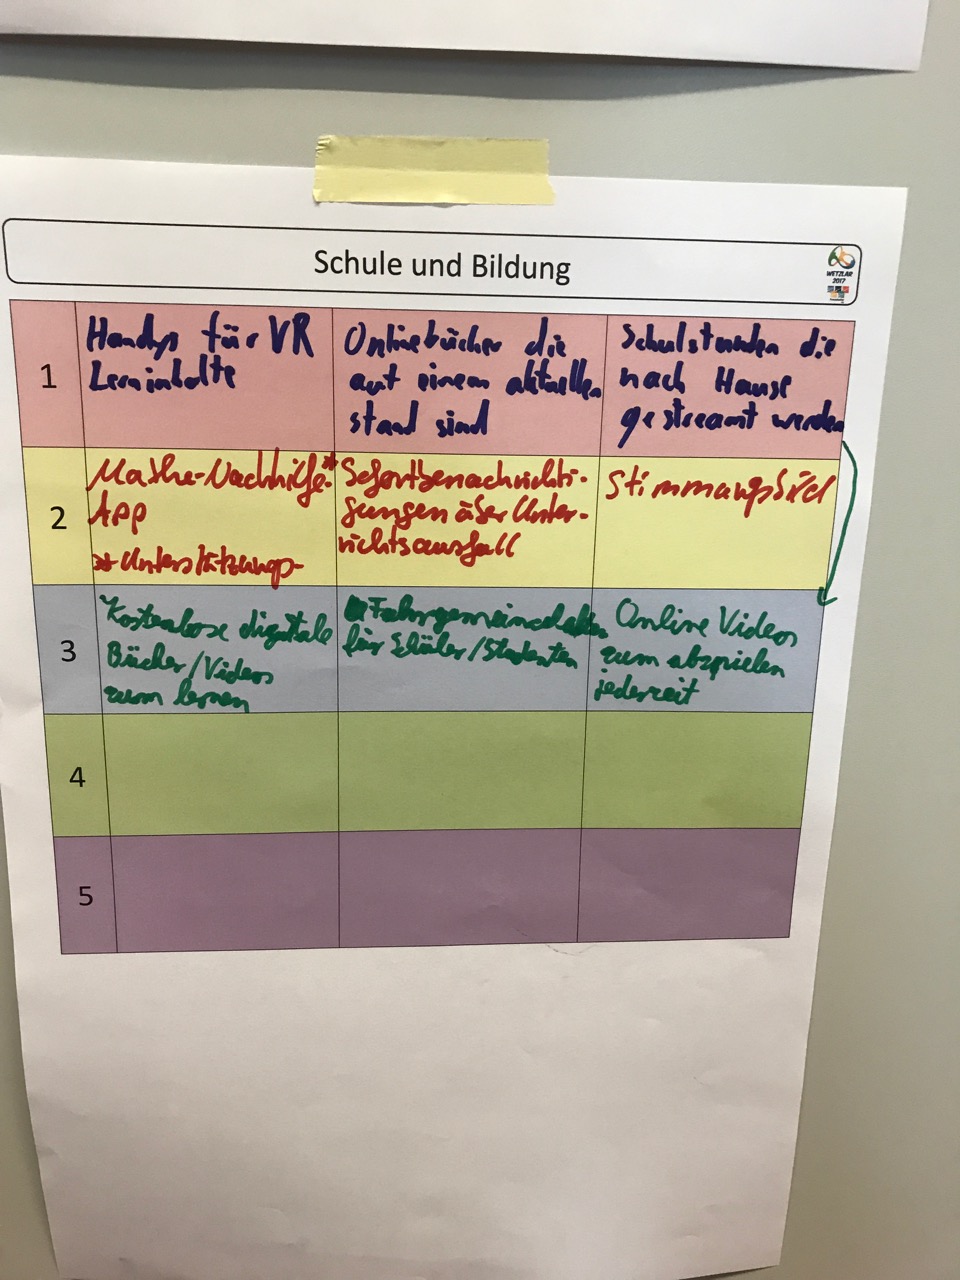 Schule und Bildung
WETZLAR
2017
1
Handys für VR
Lerninhalte
Onlinebücher die
auf einem aktuellen
stand sind
Schulstunden die
nach Hause
gestreamt werden
2
Mathe-Nachhilfe*-
App
*Unterstützungs-
Sofortbenachrichti-
gungen über Unter-
richtsausfall
Stimmungsbild
3
Kostenlose digitale
Bücher/Videos
zum lernen
für Schüler/Studenten
Online Videos
zum abspielen
jederzeit
4
5